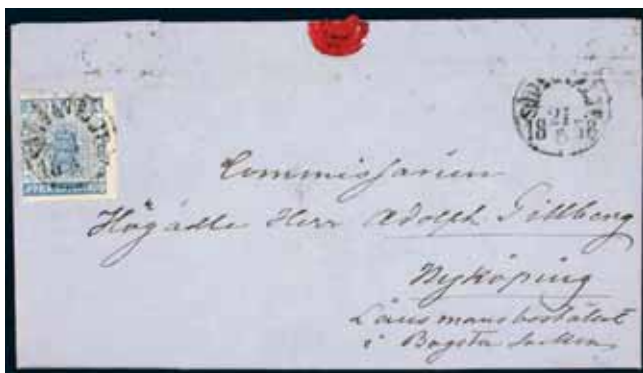 21
18 58
6
Commissarien
Högädle Herr Adolph Tillberg
Nyköping
Länsmansbostället
i Bogsta socken